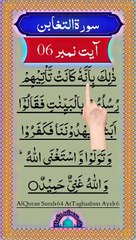 سورة التغابن
آیت نمبر 06
ذٰلِكَ بِاَنَّهٗ كَانَتْ تَّاْتِيْهِمْ
رُسُلُهُمْ بِالْبَيِّنٰتِ فَقَالُوْٓا
اَبَشَرٌ يَّهْدُوْنَنَا فَكَفَرُوْا
وَتَوَلَّوْا وَّاسْتَغْنَى اللّٰهُ ؕ
وَاللّٰهُ غَنِىٌّ حَمِيْدٌ
AlQuran Surah64 AtTaghaabun Ayah6